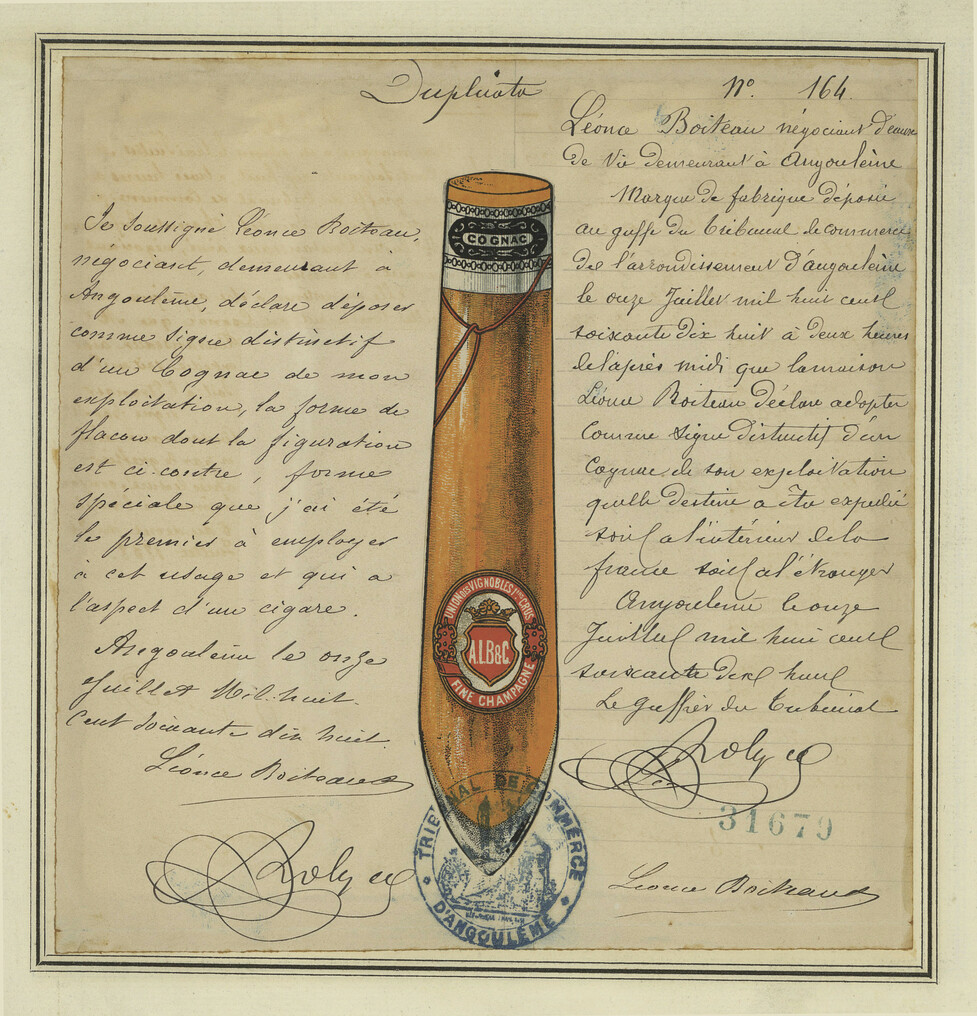 Duplicata
Je soussigné Léonce Boiteau,
négociant, demeurant à
Angoulême, déclare déposer
comme signe distinctif
d'un Cognac de mon
exploitation, la forme de
flacon dont la figuration
est ci-contre, forme
spéciale que j'ai été
le premier à employer
à cet usage et qui a
l'aspect d'un cigare.
Angoulême le onze
Juillet Mil-huit-
cent soixante dix huit.
Léonce Boiteau
COGNAC
UNION DES VIGNOBLES 1ERS CRUS
A.L.B&C.
FINE CHAMPAGNE
TRIBUNAL DE COMMERCE
D'ANGOULÊME
No. 164.
Léonce Boiteau négociant d'eaux
de vie demeurant à Angoulême
Marque de fabrique déposée
au greffe du tribunal de commerce
de l'arrondissement d'angoulême
le onze Juillet mil huit cent
soixante dix huit à deux heures
de l'après midi que la maison
Léonce Boiteau déclare adopter
comme signe distinctif d'un
Cognac de son exploitation
qu'elle destine a être expédié
soit a l'intérieur de la
france soit a l'étranger
Angoulême le onze
Juillet mil huit cent
soixante dix huit
Le Greffier du tribunal
31679
Léonce Boiteau